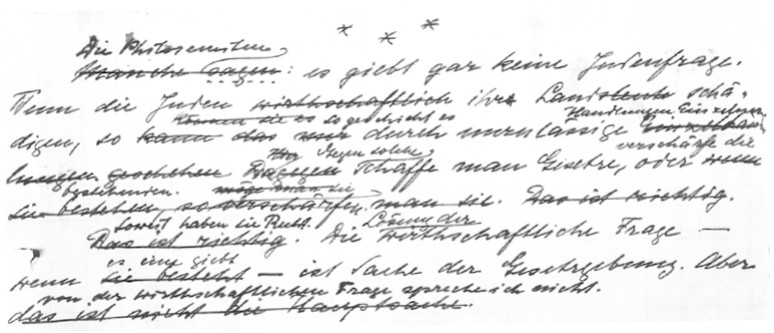 * * *
Die Philosemiten
Manche sagen: es giebt gar keine Judenfrage.
Wenn die Juden wirthschaftlich ihre Landsleute schä-
können sie es so geschieht es Handlungen Einzelner
digen, so kann das nur durch unzulässige
verschärfe die
geschehen Dagegen Gegen solche schaffe man Gesetze, oder wenn
bestehenden. möge man sie
sie bestehen, so verschärfe man sie. Das ist richtig.
soweit haben sie Recht. Lösung der
Das ist richtig. Die wirthschaftliche Frage —
es eine giebt
wenn sie besteht — ist Sache der Gesetzgebung. Aber
von der wirthschaftlichen Frage spreche ich nicht.
das ist nicht die Hauptsache.